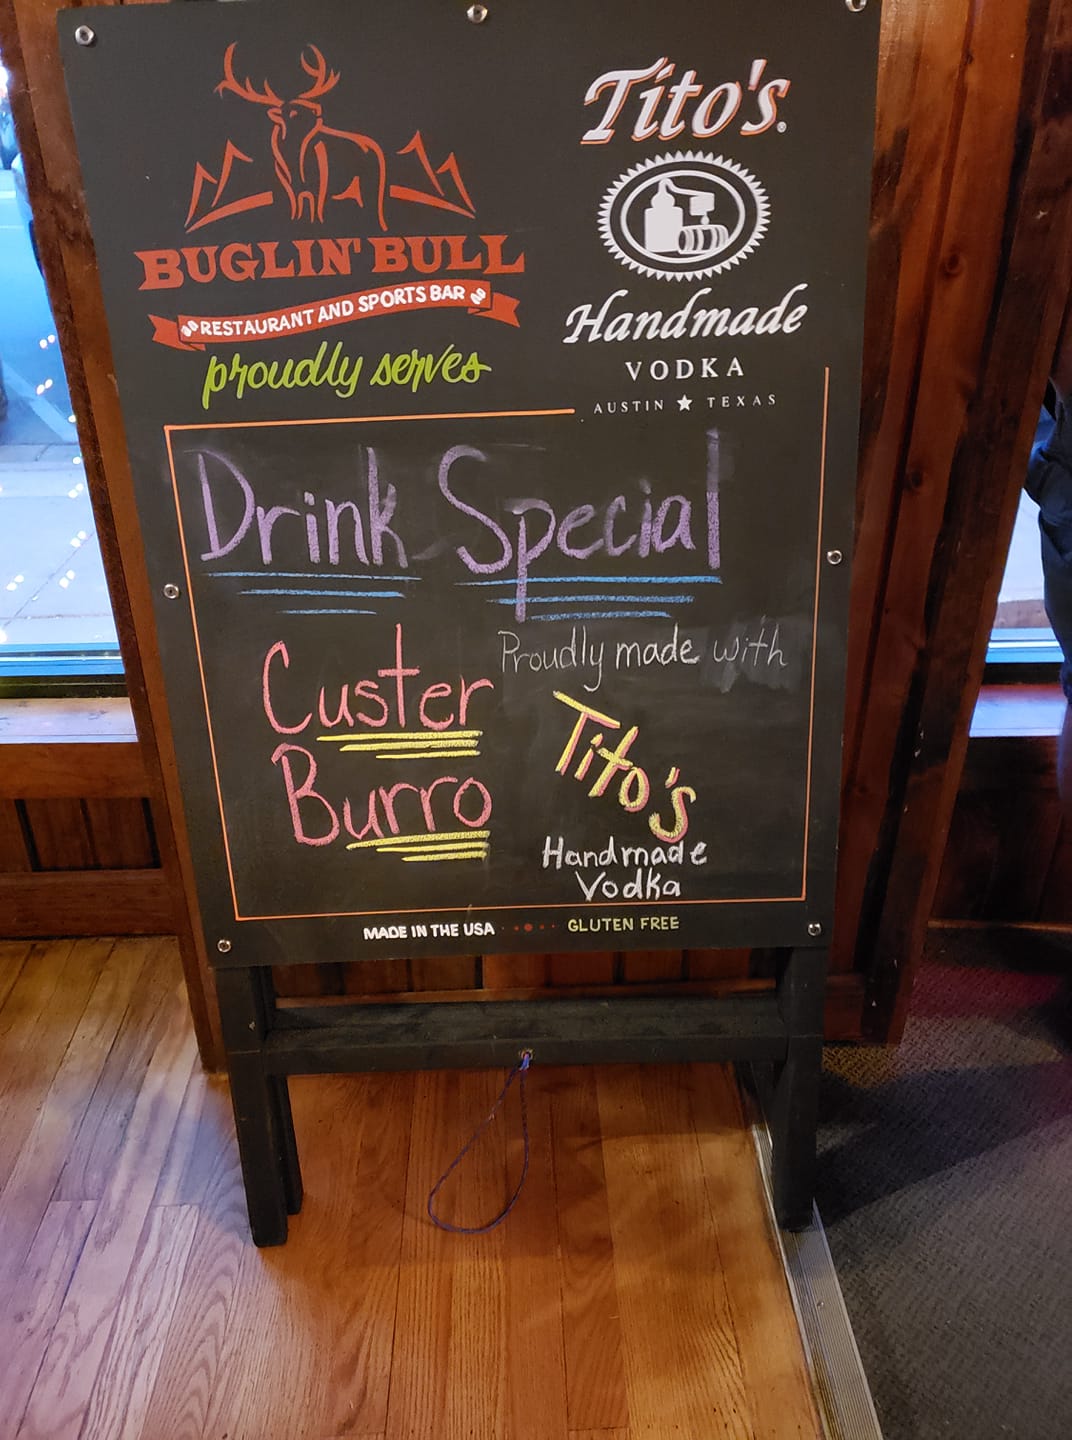 BUGLIN' BULL
RESTAURANT AND SPORTS BAR
proudly serves
Tito's.
Handmade
VODKA
AUSTIN ★ TEXAS
Drink Special
Custer
Burro
Proudly made with
Tito's
Handmade
Vodka
MADE IN THE USA
GLUTEN FREE